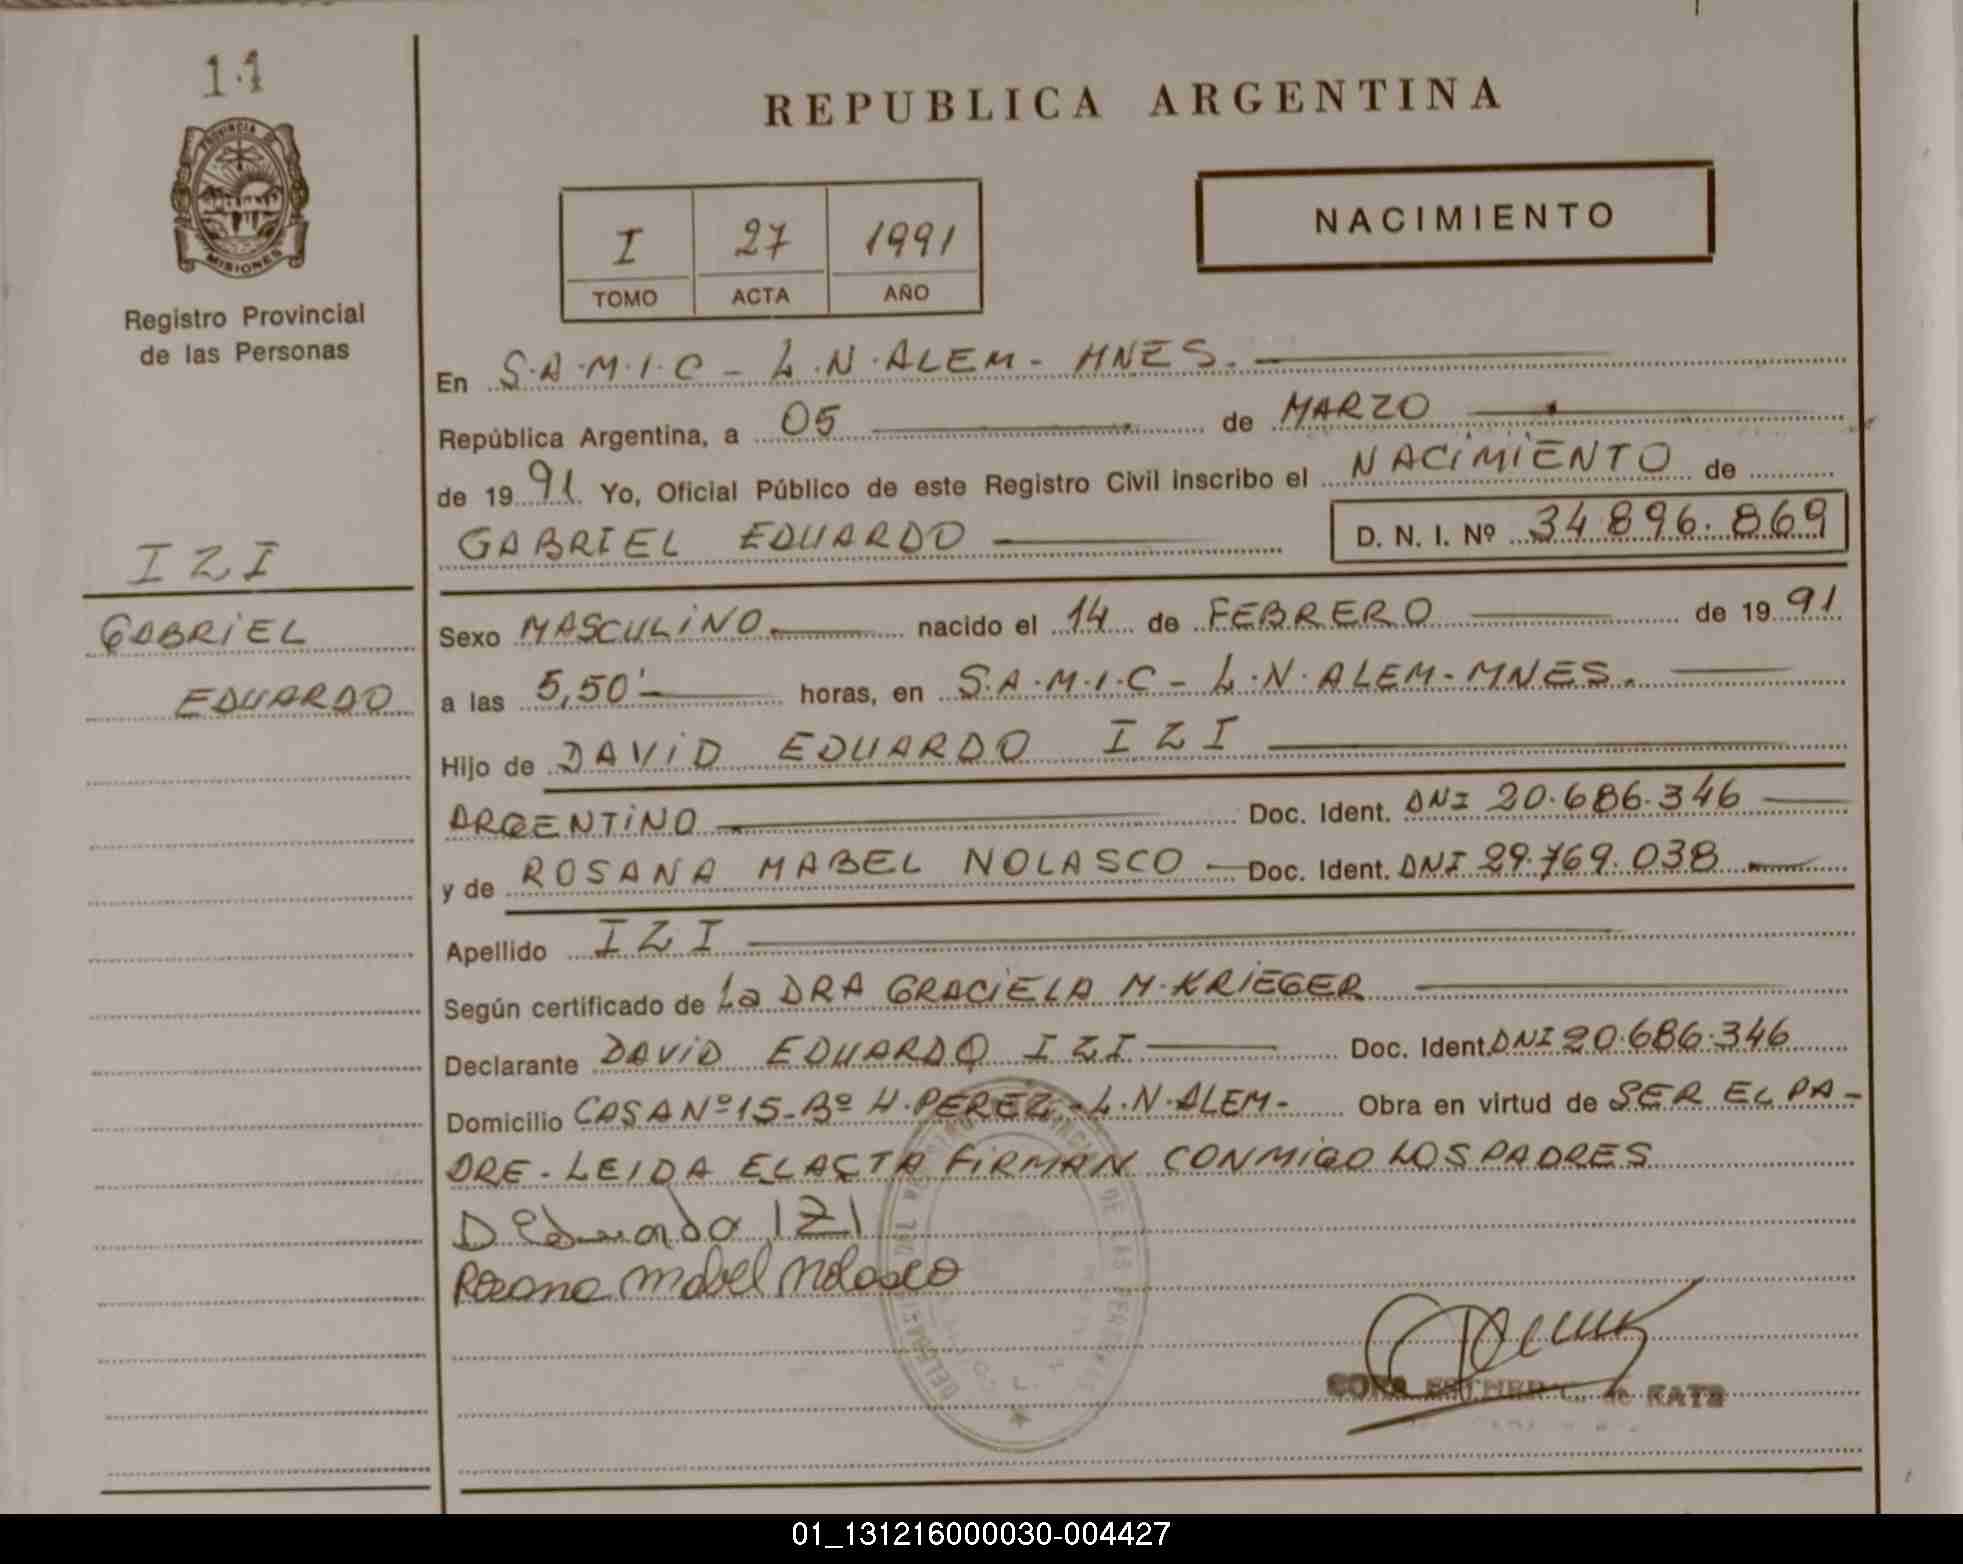 11
PROVINCIA DE
MISIONES
Registro Provincial
de las Personas
IZI
GABRIEL
EDUARDO
REPUBLICA ARGENTINA
I 27 1991
TOMO ACTA AÑO
NACIMIENTO
En S.A.M.I.C - L.N.ALEM - MNES.
República Argentina, a 05 de MARZO
de 1991 Yo, Oficial Público de este Registro Civil inscribo el NACIMIENTO de
GABRIEL EDUARDO D. N. I. Nº 34.896.869
Sexo MASCULINO nacido el 14 de FEBRERO de 1991
a las 5,50' horas, en S.A.M.I.C - L.N.ALEM-MNES.
Hijo de DAVID EDUARDO IZI
ARGENTINO Doc. Ident. DNI 20.686.346
y de ROSANA MABEL NOLASCO Doc. Ident. DNI 29.769.038
Apellido IZI
Según certificado de La DRA GRACIELA M. KRIEGER
Declarante DAVID EDUARDO IZI Doc. Ident. DNI 20.686.346
Domicilio CASA Nº 15-Bº H. PEREZ-L.N.ALEM- Obra en virtud de SER EL PA-
DRE - LEIDA EL ACTA FIRMAN CONMIGO LOS PADRES
D Eduardo IZI
Rosana Mabel Nolasco
ESTHER C. de KATZ
01_131216000030-004427